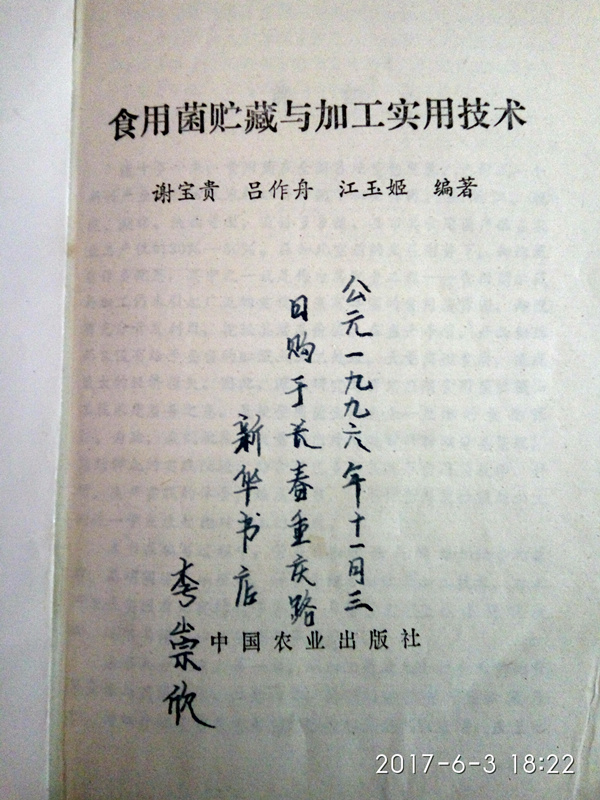 食用菌贮藏与加工实用技术
谢宝贵 吕作舟 江玉姬 编著
公元一九九六年十一月三
日购于长春重庆路
新华书店
李崇欣
中国农业出版社
2017-6-3 18:22